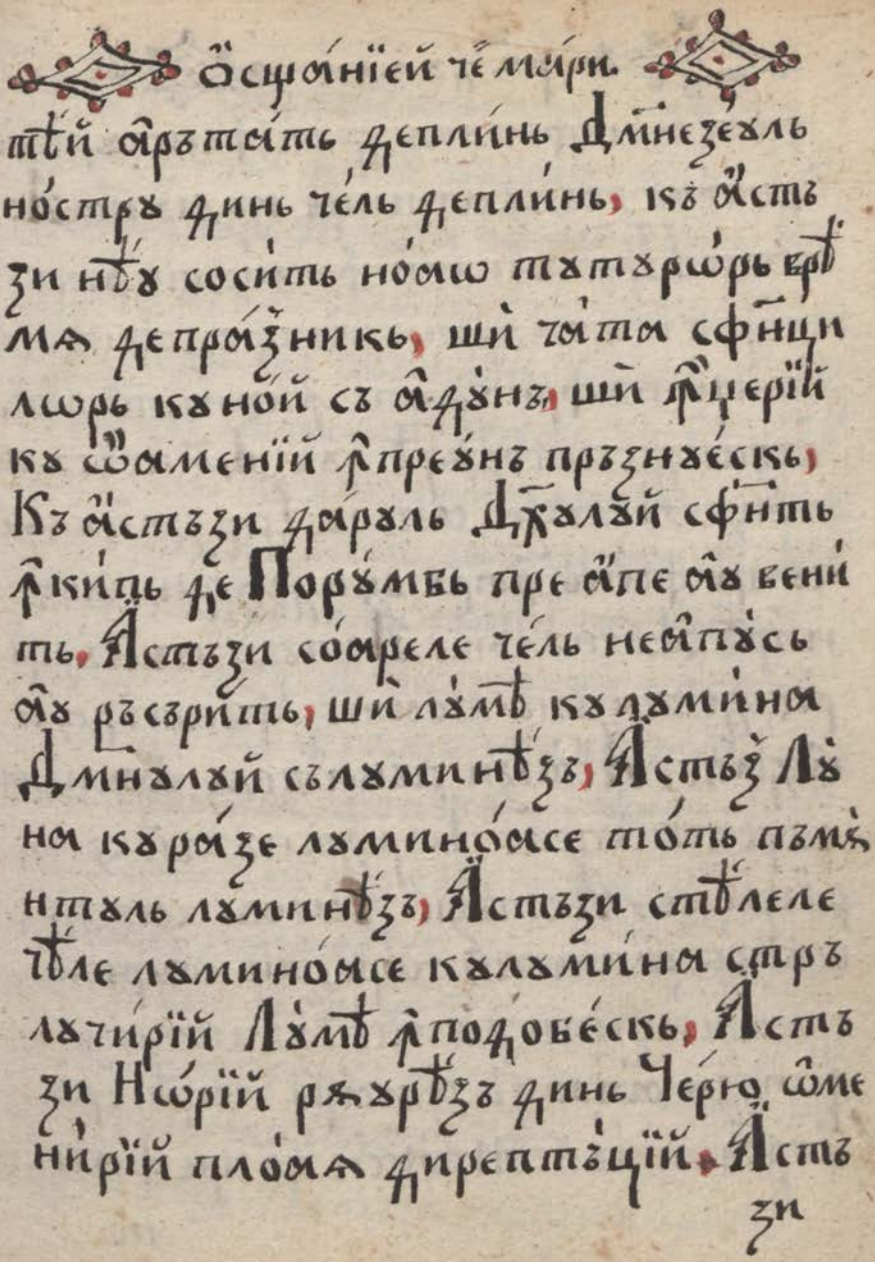 Ѻ҆сщанїей че́ ма́ри.
тѣ́й а҆ръта́ть депли́нь Дм҃незе́уль
но́стрꙋ динь че́ль депли́нь, къ а҆́стъ
зи нѣ́ꙋ соси́ть но́аѡ тꙋтꙋрѡ́рь врѣ́
мѧ депра́зникь, шѝ ча́та сфн҃ци
лѡрь кꙋно́й съ а҆дꙋ́нъ, шѝ ꙟ҆џерїй
кꙋ ѡ҆́аменїй ꙟ҆преꙋ́нъ пръзнꙋе́скь,
Къ а҆́стъзи да́рꙋль Дх҃ꙋлꙋ́й сфн҃ть
ꙟ҆ки́пь де Порꙋ́мбь пре а҆́пе а҆ꙋ вени́
ть, А҆́стъзи со́ареле че́ль неа҆пꙋ́сь
а҆ꙋ ръсъри́ть, шѝ лꙋ́мѣ кꙋлꙋми́на
Дм҃нꙋлꙋй сълꙋминѣ́зъ, А҆́стъз Лꙋ́
на кꙋра́зе лꙋмино́асе то́ть пъмѫ́
нтꙋль лꙋминѣ́зъ, А҆́стъзи стѣ́леле
чѣ́ле лꙋмино́асе кꙋлꙋми́на стръ
лꙋчи́рїй Лꙋ́мѣ ꙟ҆подобе́скь, А҆́стъ
зи Нѡ́рїй рѫꙋрѣ́зъ динь Че́рю ѡ҆ме
ни́рїй пло́аѧ дирептъ́цїй. А҆́стъ
зи